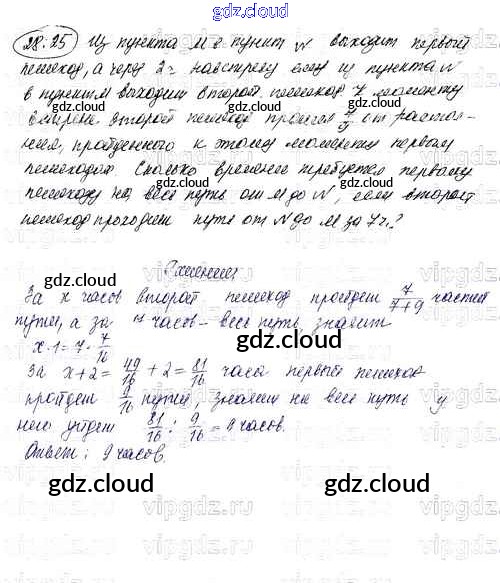 gdz.cloud
28.25 Из пункта М в пункт N выходит первый
пешеход, а через 2ч навстречу ему из пункта N
в пункт М выходит второй пешеход. К моменту
встречи второй пешеход прошел 7/9 от расстоя-
ния, пройденного к этому моменту первым
пешеходом. Сколько времени требуется первому
пешеходу на весь путь от М до N, если второй
пешеход проходит путь от N до М за 7ч.?
Решение
За x часов второй пешеход пройдет 7/(7+9) частей
пути, а за 7 часов – весь путь, значит
x·1=7·7/16
За x+2 = 49/16 + 2 = 81/16 часа первый пешеход
пройдет 9/16 пути, значит на весь путь у
него уйдет 81/16 : 9/16 = 9 часов.
Ответ: 9 часов.
gdz.cloud